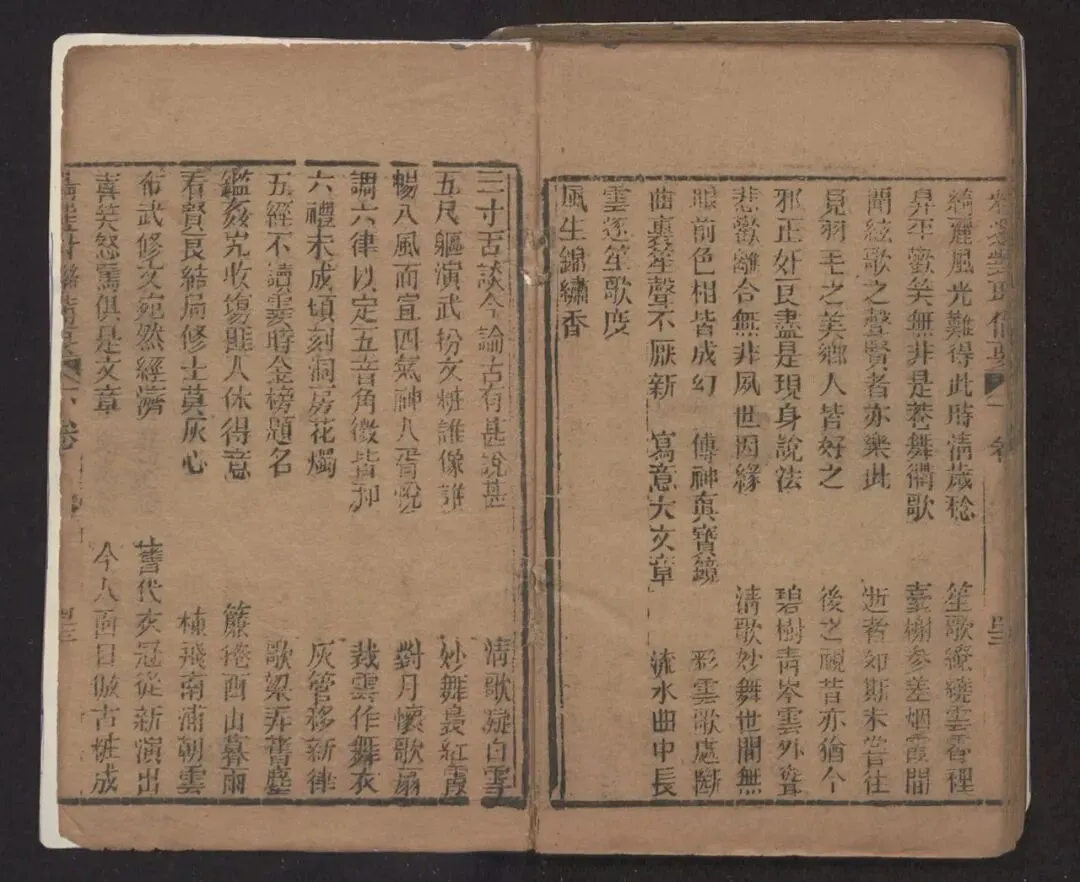 綺麗風光難得此時清歲稔 笙歌繚繞雲霄裡
昇平歡笑無非是巷舞衢歌 臺榭参差烟霞間
聞絃歌之聲賢者亦樂此 逝者如斯未嘗往
見羽毛之美鄉人皆好之 後之視昔亦猶今
邪正奸良盡是現身說法 碧樹青岑雲外聳
悲歡離合無非夙世因緣 清歌妙舞世間無
眼前色相皆成幻 傳神真寶鏡 彩雲歌處斷
曲裏笙聲不厭新 寫意大文章 流水曲中長
雲逐笙歌度
風生錦繡香
三寸舌談今論古有甚說甚 清歌凝白雪
五尺軀演武扮文粧誰像誰 妙舞裊紅霞
暢八風而宣四氣神人胥悅 對月懷歌扇
調六律以定五音角徵皆和 裁雲作舞衣
六禮未成頃刻洞房花燭 灰管移新律
五經不讀霎時金榜題名 歌梁弄舊塵
鑑姦宄收塲匪人休得意 簾捲西山暮雨
看賢良結局修士莫灰心 棟飛南浦朝雲
布武修文宛然經濟 舊代衣冠從新演出
喜笑怒罵俱是文章 今人面目倣古粧成